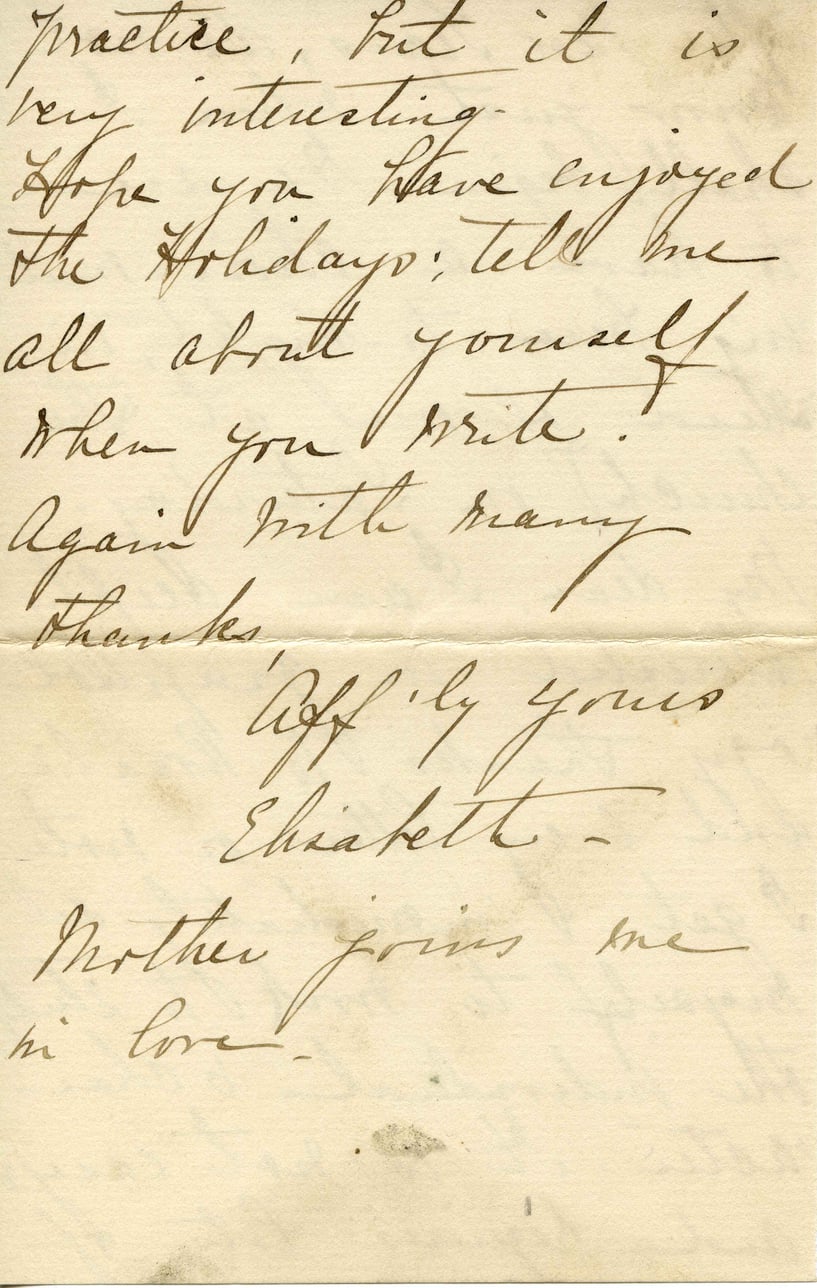 practice, but it is
very interesting.
Hope you have enjoyed
the Holidays; tell me
all about yourself
when you write.
Again with many
thanks,
Aff'ly yours
Elisabeth -
Mother joins me
in love -